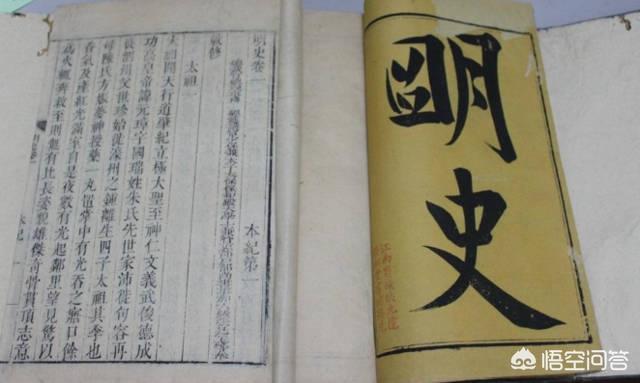 朙史
明史卷一
本紀第一
敕修
太祖一
太祖開天行道肇紀立極大聖至神仁文義武俊德成
功高皇帝諱元璋字國瑞姓朱氏先世家沛徙句容再
徙泗州父世珍始徙濠州之鍾離生四子太祖其季也
母陳氏方娠夢神授藥一丸置掌中有光吞之寤口餘
香氣及產紅光滿室自是夜數有光起鄰里望見驚以
為火輒奔救至則無有比長姿貌雄傑奇骨貫頂志意
本紀
悟空问答